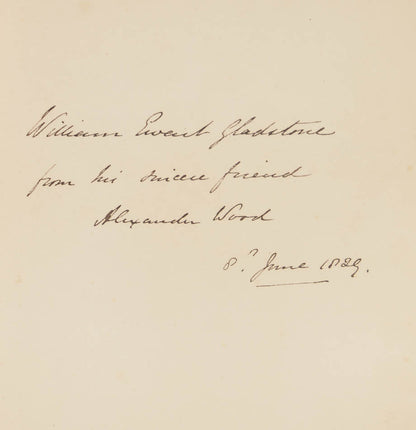 William Ewart Gladstone
from his sincere friend
Alexander Wood
8? June 1829.